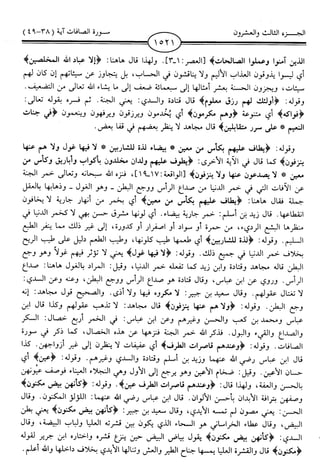 الجـزء الثالث والعشرون
١٥٢١
سورة الصافات آية (٣٨-٤٩)
الذين آمنوا وعملوا الصالحات﴾ [العصر: ١-٣]. ولهذا قال هاهنا: ﴿إلا عباد الله المخلصين﴾
أي ليسوا يذوقون العذاب الأليم ولا يناقشون في الحساب، بل يتجاوز عن سيئاتهم إن كان لهم
سيئات، ويجزون الحسنة بعشر أمثالها إلى سبعمائة ضعف إلى ما يشاء الله تعالى من التضعيف.
وقوله: ﴿أولئك لهم رزق معلوم﴾ قال قتادة والسدي: يعني الجنة. ثم فسره بقوله تعالى:
﴿فواكه﴾ أي متنوعة ﴿وهم مكرمون﴾ أي يُخدمون ويرزقون ويرفهون وينعمون ﴿في جنات
النعيم * على سرر متقابلين﴾ قال مجاهد لا ينظر بعضهم في قفا بعض.
وقوله: ﴿يطاف عليهم بكأس من معين * بيضاء لذة للشاربين * لا فيها غول ولا هم عنها
ينزفون﴾ كما قال في الآية الأخرى: ﴿يطوف عليهم ولدان مخلدون بأكواب وأباريق وكأس من
معين * لا يصدعون عنها ولا ينزفون﴾ [الواقعة: ١٧-١٩]، فنزه الله سبحانه وتعالى خمر الجنة
عن الآفات التي في خمر الدنيا من صداع الرأس ووجع البطن - وهو الغول - وذهابها بالعقل
جملة فقال هاهنا: ﴿يطاف عليهم بكأس من معين﴾ أي بخمر من أنهار جارية لا يخافون
انقطاعها. قال زيد بن أسلم: خمر جارية بيضاء. أي لونها مشرق حسن بهي لا كخمر الدنيا في
منظرها البشع الرديء، من حمرة أو سواد أو اصفرار أو كدورة، إلى غير ذلك مما ينفر الطبع
السليم. وقوله: ﴿لذة للشاربين﴾ أي طعمها طيب كلونها، وطيب الطعم دليل على طيب الريح
بخلاف خمر الدنيا في جميع ذلك. وقوله: ﴿لا فيها غول﴾ يعني لا تؤثر فيهم غولاً وهو وجع
البطن قاله مجاهد وقتادة وابن زيد كما تفعله خمر الدنيا، وقيل: المراد بالغول هاهنا: صداع
الرأس. وروي عن ابن عباس، وقال قتادة هو صداع الرأس ووجع البطن، وعنه وعن السدي:
لا تغتال عقولهم. وقال سعيد بن جبير: لا مكروه فيها ولا أذى. والصحيح قول مجاهد: إنه
وجع البطن. وقوله: ﴿ولا هم عنها ينزفون﴾ قال مجاهد: لا تذهب عقولهم وكذا قال ابن
عباس ومحمد بن كعب والحسن وغيرهم وعن ابن عباس: في الخمر أربع خصال: السكر
والصداع والقيء والبول. فذكر الله خمر الجنة فنزهها عن هذه الخصال، كما ذكر في سورة
الصافات. وقوله: ﴿وعندهم قاصرات الطرف﴾ أي عفيفات لا ينظرن إلى غير أزواجهن. كذا
قال ابن عباس رضي الله عنهما وزيد بن أسلم وقتادة والسدي وغيرهم. وقوله: ﴿عين﴾ أي
حسان الأعين. وقيل: ضخام الأعين وهو يرجع إلى الأول وهي النجلاء العيناء فوصف عيونهن
بالحسن والعفة، ولهذا قال: ﴿وعندهم قاصرات الطرف عين﴾. وقوله: ﴿كأنهن بيض مكنون﴾
وصفهن بترافة الأبدان بأحسن الألوان. قال ابن عباس رضي الله عنهما: اللؤلؤ المكنون. وقال
الحسن: يعني مصون لم تمسه الأيدي، وقال سعيد بن جبير: ﴿كأنهن بيض مكنون﴾ يعني بطن
البيض، وقال عطاء الخراساني هو السحاء الذي يكون بين قشرته العليا ولباب البيضة، وقال
السدي: ﴿كأنهن بيض مكنون﴾ يقول بياض البيض حين ينزع قشره واختاره ابن جرير لقوله
﴿مكنون﴾ قال والقشرة العليا يمسها جناح الطير والعش وتنالها الأيدي بخلاف داخلها والله أعلم.